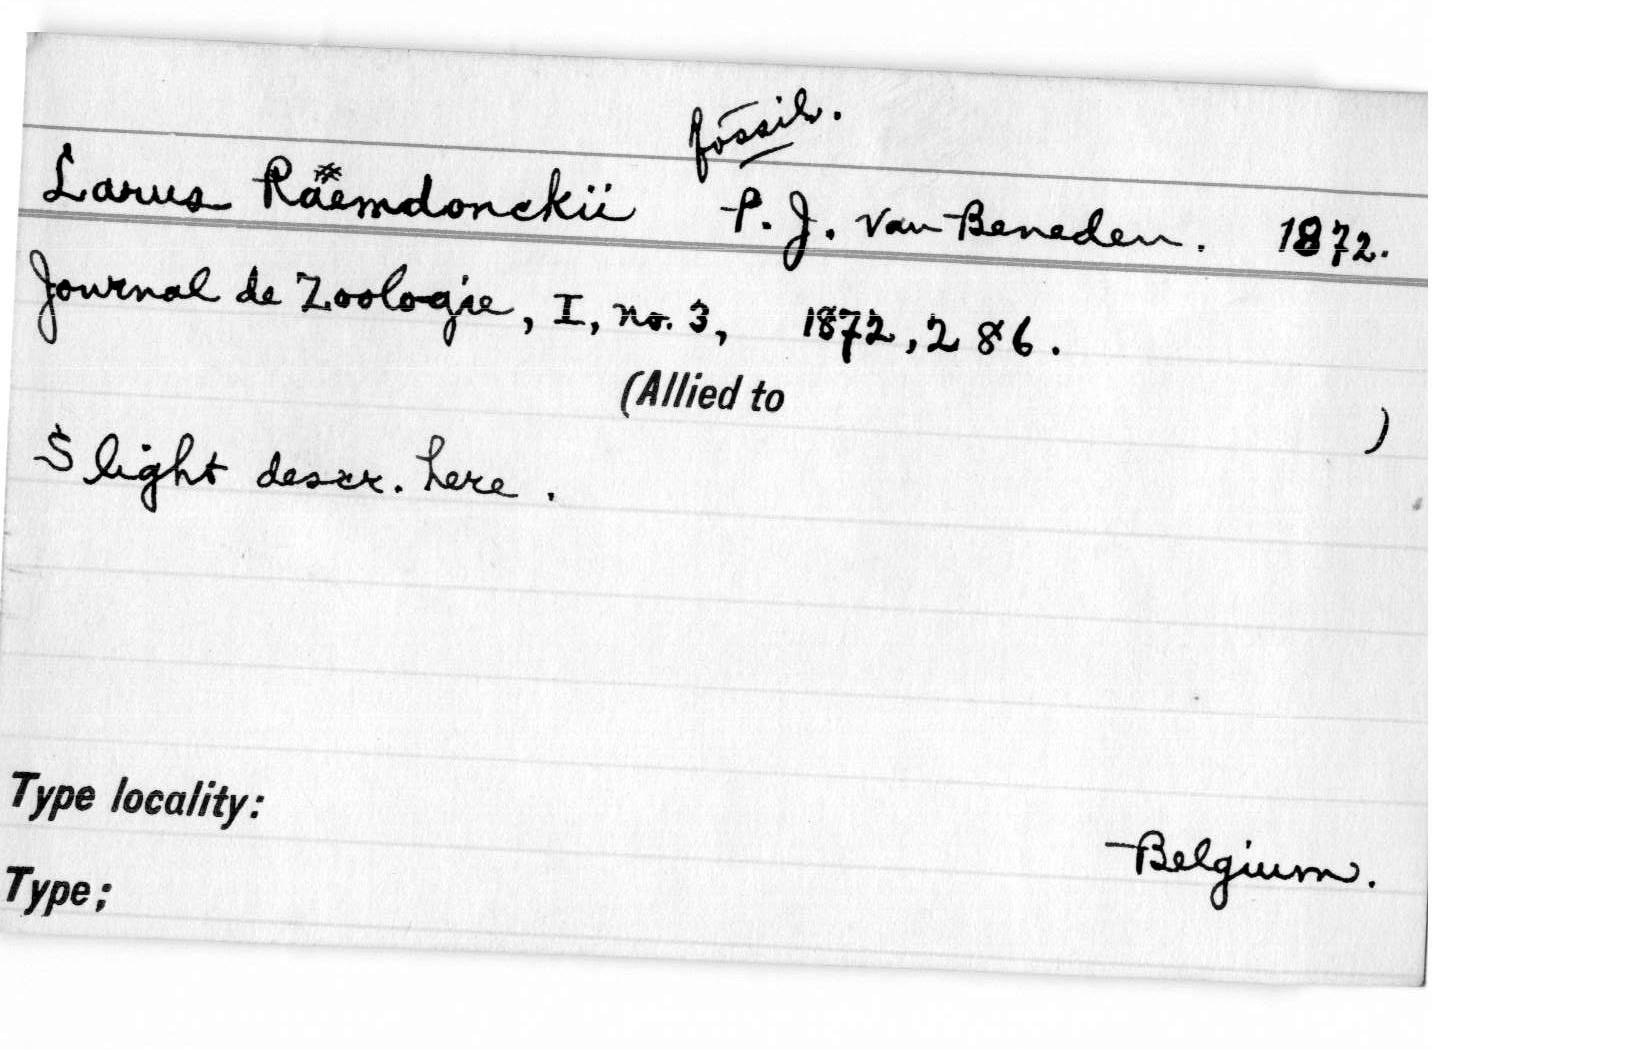 fossil.
Larus Raemdonckii P. J. van Beneden. 1872.
Journal de Zoologie, I, no. 3, 1872, 286.
(Allied to )
Slight descr. here.
Type locality:
Belgium.
Type;